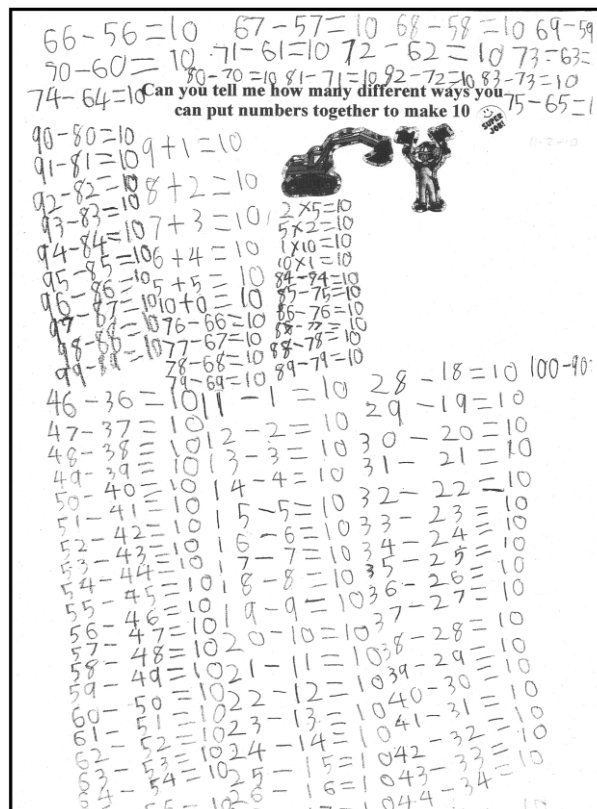 66-56=10 67-57=10 68-58=10 69-59
70-60=10 71-61=10 72-62=10 73-63=
80-70=10 81-71=10 82-72=10 83-73=10
74-64=10 75-65=1
Can you tell me how many different ways you
can put numbers together to make 10
SUPER JOB!
90-80=10
91-81=10
92-82=10
93-83=10
94-84=10
95-85=10
96-86=10
97-87=10
98-88=10
99-89=10
9+1=10
8+2=10
7+3=10
6+4=10
5+5=10
10+0=10
76-66=10
77-67=10
78-68=10
79-69=10
2×5=10
5×2=10
1×10=10
10×1=10
85-75=10
86-76=10
88-78=10
89-79=10
46-36=10
47-37=10
48-38=10
49-39=10
50-40=10
51-41=10
52-42=10
53-43=10
54-44=10
55-45=10
56-46=10
57-47=10
58-48=10
59-49=10
60-50=10
61-51=10
62-52=10
63-53=10
54=10
11-1=10
12-2=10
13-3=10
14-4=10
15-5=10
16-6=10
17-7=10
18-8=10
19-9=10
20-10=10
21-11=10
22-12=10
23-13=10
24-14=10
25-15=10
26-16=10
28-18=10 100-90
29-19=10
30-20=10
31-21=10
32-22=10
33-23=10
34-24=10
35-25=10
36-26=10
37-27=10
38-28=10
39-29=10
40-30=10
41-31=10
42-32=10
43-33=10
44-34=10